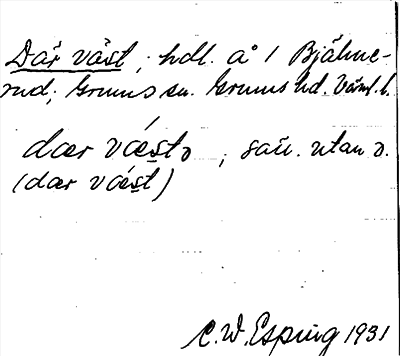 Där väst, hdl. å 1 Bjälne-
rud, Grums sn. Grums hd. Värml. l.
dær væsto ; san. utan o.
(dær væst)
C. W. Esping 1931